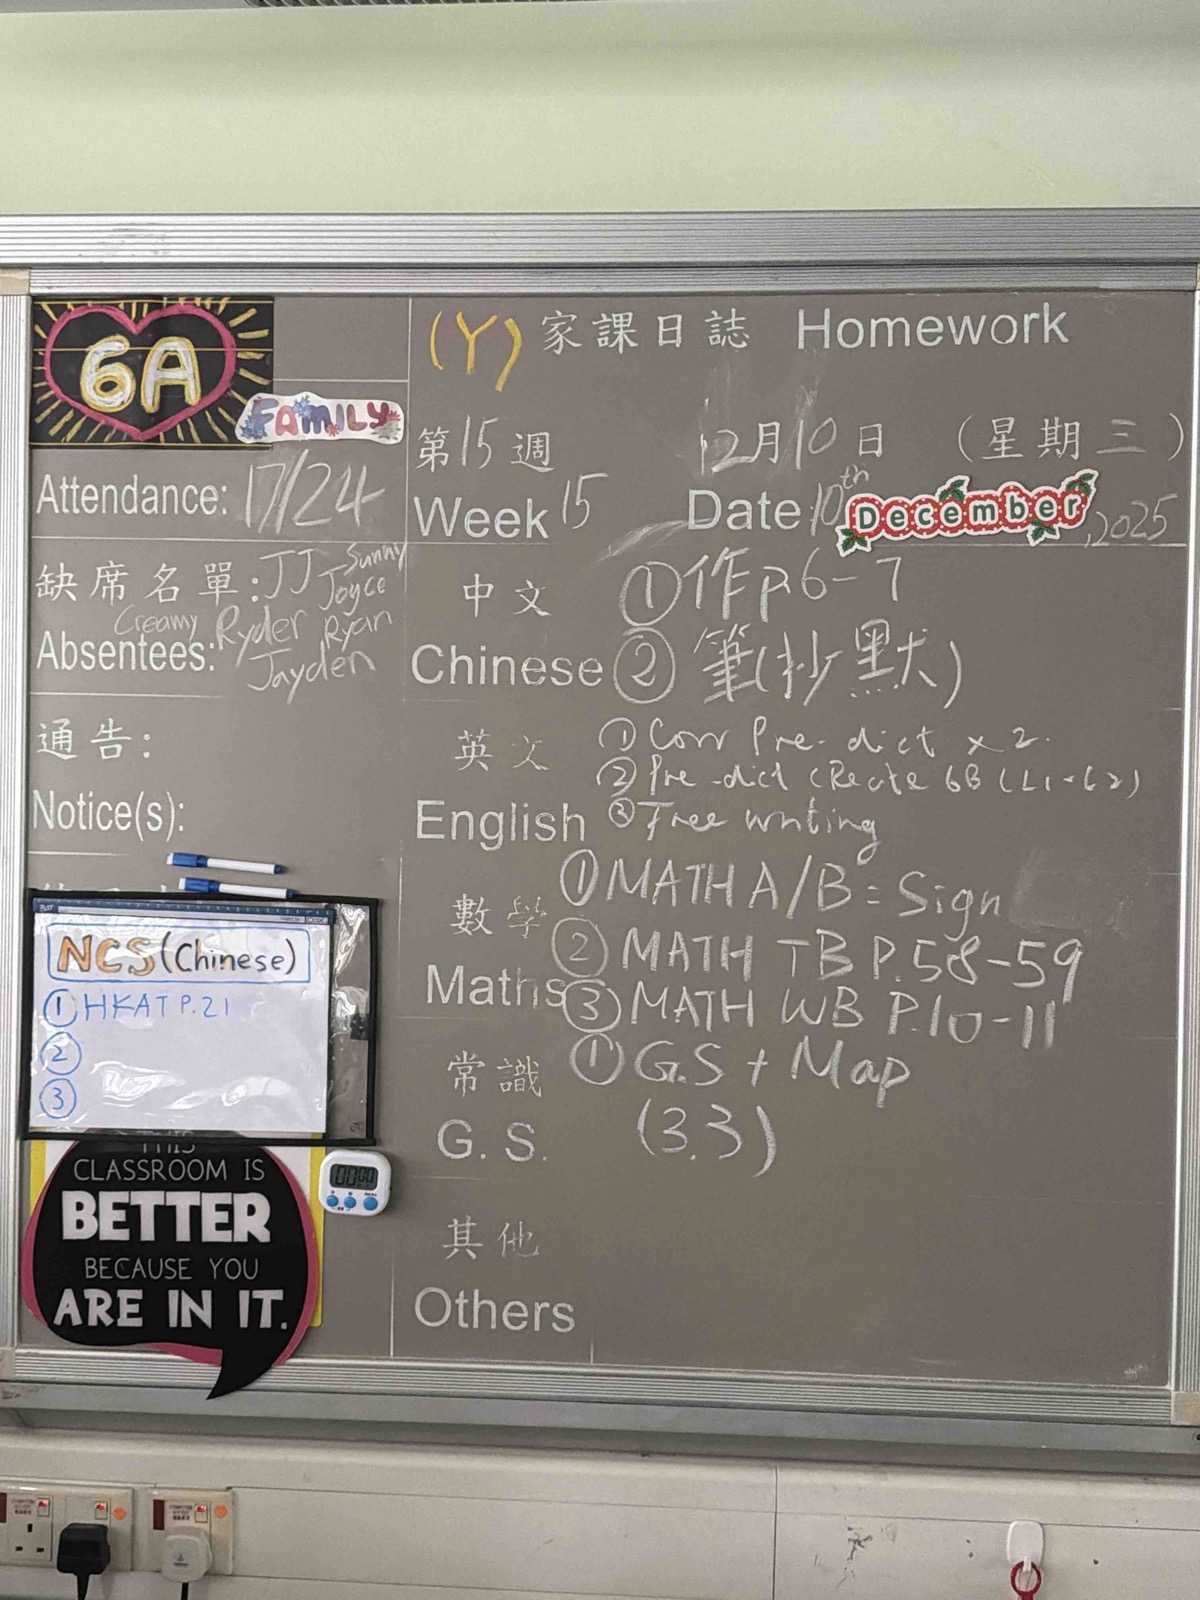 6A
FAMILY
Attendance: 17/24
缺席名單: JJ Sunny
Joyce
Creamy Ryder Ryan
Absentees: Jayden
通告:
Notice(s):
NCS (Chinese)
① HKAT P.21
②
③
THIS
CLASSROOM IS
BETTER
BECAUSE YOU
ARE IN IT.
(Y) 家課日誌 Homework
第15週 12月10日 (星期三)
Week 15 Date 10th December, 2025
中文 ①作p.6-7
Chinese ②筆(抄默)
英文 ① Corr Pre-dict x 2.
② Pre-dict (Recite 6B (L1-L2)
English ③ Free writing
數學 ① MATH A/B = Sign
② MATH TB P.58-59
Maths ③ MATH WB P.10-11
常識 ① G.S + Map
G. S. (3.3)
其他
Others